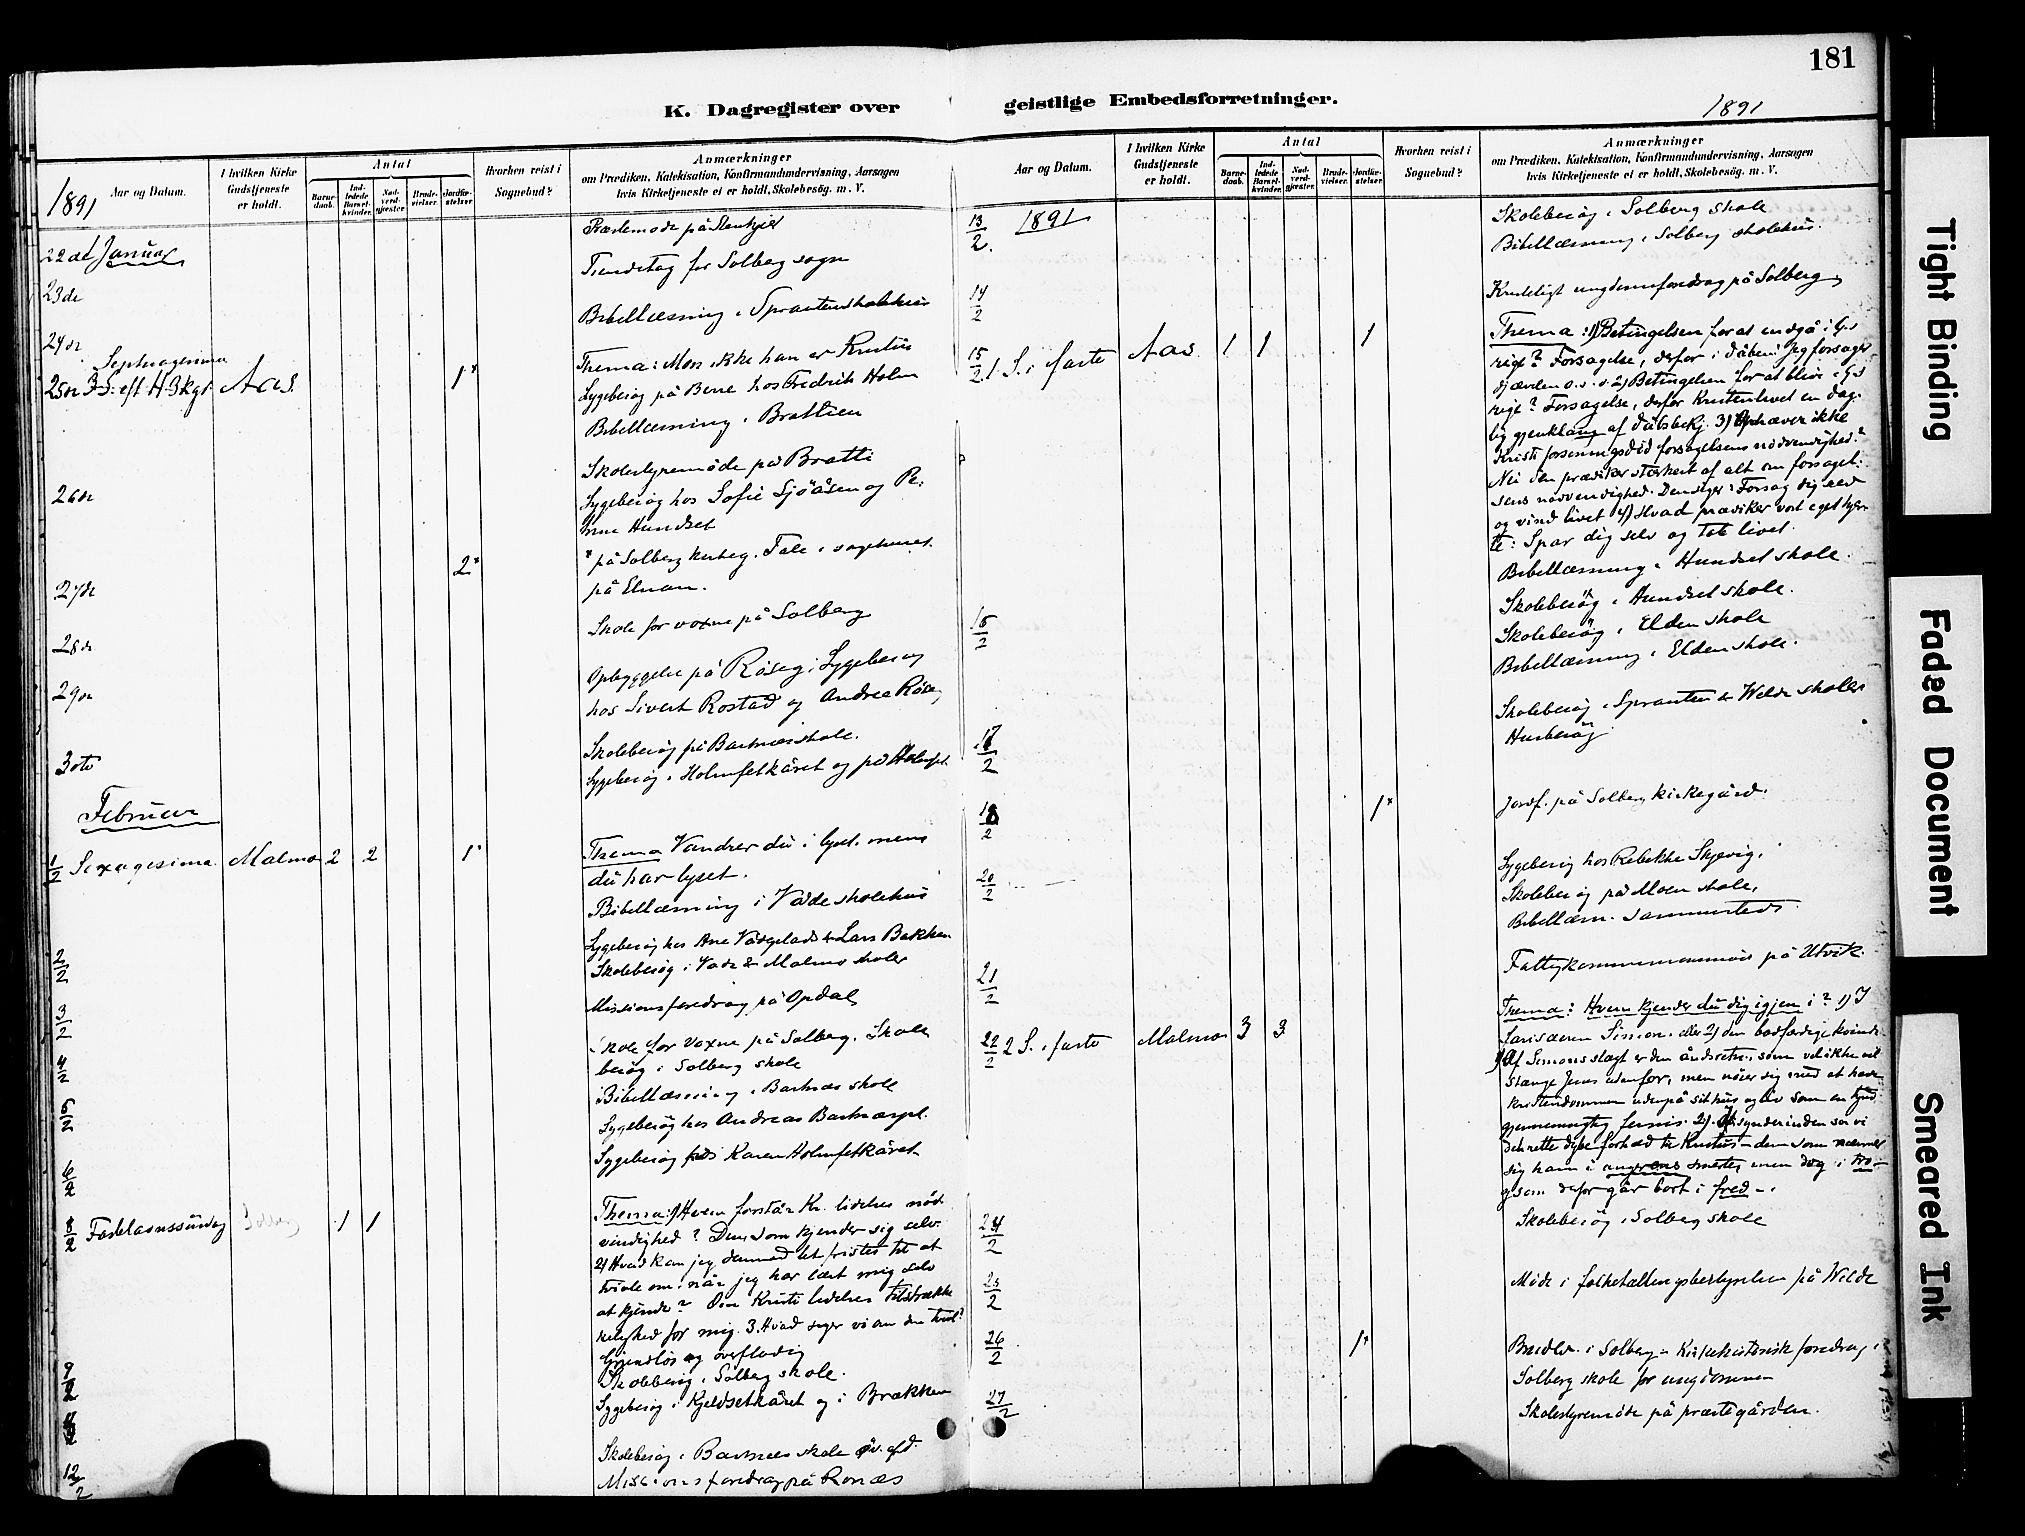 181
K. Dagregister over geistlige Embedsforretninger.
1891
1891
Aar og Datum.
I hvilken Kirke Gudstjeneste er holdt.
Antal
Barne-daab.
Ind-ledede Barsel-kvinder.
Nad-verd-gjester
Brude-vielser.
Jordfæ-stelser
Hvorhen reist i Sognebud?
Anmærkninger
om Prædiken, Katekisation, Konfirmandundervisning, Aarsagen
hvis Kirketjeneste ei er holdt, Skolebesøg. m. V.
22de Januar
Præstemøde på Stenkjer
23de
Tiendetag for Solberg sogn
24de
Bibellæsning i Sprauten skolehus
Septuagesima
25de 3 S. eft H3kgr Aas. 1*
Thema: Mon ikke han er Kristus
Sygebesøg på Berre hos Fredrik Holm
Bibellæsning i Brattien
26de
Skolestyremøde på Bratti
Sygebesøg hos Sofie Sjöåsen og
Hundset
27de 2*
* på Solberg kirkeg. Tale i sørgehuset
på Elnan.
28de
Skole for voxne på Solberg
29de
Opbyggelse på Röseg; Sygebesøg
hos Sivert Rostad og Andrea Röseg
30te
Skolebesøg på Bartnæs skole.
Sygebesøg i Holmsetkåret og på
Februar
1/2 Sexagesima Malmo 2 2 1*
Thema Vandrer du i lyset mens
du har lyset.
Bibellæsning i Vade skolehus
2/2
Sygebesøg hos Ane Vadeplads & Lars Bakken
Skolebesøg i Vade & Malmo skoler
3/2
Missionsforedrag på Opdal
4/2
Skole for voxne på Solberg. Skole
besøg i Solberg skole
5/2
Bibellæsning i Bartnæs skole
Sygebesøg hos Andreas Bartnæspl.
6/2
Sygebesøg hos Karen Holmsetkåret
8/2 Fastelavnssöndag Solberg 1 1
Thema: 1) Hvem forstår Kr. lidelses nöd-
vendighed? Den, som kjender sig selv.
2) Hvad kan jeg dermed let fristes til at
tvile om, når jeg har lært mig selv
at kjende? Om Kristi lidelses tilstrække
lighed for mig. 3. Hvad siger vi om den tvil?
Grundlös og overflødig
9/2
Skolebesøg i Solberg skole.
Sygebesøg i Kjeldsetkåret og i Brækken
12/2
Skolebesøg i Bartnæs skole öv. afd.
Missionsforedrag på Ronæs
Aar og Datum.
I hvilken Kirke Gudstjeneste er holdt.
Antal
Barne-daab.
Ind-ledede Barsel-kvinder.
Nad-verd-gjester.
Brude-vielser.
Jordfæ-stelser.
Hvorhen reist i Sognebud?
Anmærkninger
om Prædiken, Katekisation, Konfirmandundervisning, Aarsagen
hvis Kirketjeneste ei er holdt, Skolebesög. m. V.
13/2. 1891
Skolebesøg i Solberg skole
Bibellæsning i Solberg skolehus.
14/2
Kristeligt ungdomsforedrag på Solberg
15/2 1. S. i faste Aas 1 1 1
Thema: 1) Betingelsen for at indgå i G.s
rige? Forsagelse, derfor i dåben: Jeg forsager
djævelen o. s. v. 2) Betingelsen for at blive i G.s
rige? Forsagelse, derfor Kristenlivet en dag-
lig gjenklang af dåbsbekj. 3) Ophæver ikke
Kristi forsoningsdöd forsagelsens nödvendighed?
Nei den prædiker stærkest af alt om forsagel-
sens nödvendighed. Den siger: Forsag dig selv
og vind livet 4) Hvad prædiker vort eget hjer-
te: Spar dig selv og tab livet.
Bibellæsning i Hundset skole.
16/2
Skolebesög i Hundset skole.
Skolebesög i Elden skole
Bibellæsning i Elden skole.
17/2
Skolebesøg i Sprauten & Welde skoler
Husbesøg
18/2 1*
Jordf. på Solberg kirkegård.
20/2
Sygebesøg hos Rebekka Skjevig.
Skolebesøg på Moen skole.
Bibellæsn. sammesteds.
21/2
Fattigkommissionsmöde på Utvik
22/2 2 S. i faste Malmo 3 3
Thema: Hvem kjender du dig igjen i? 1) I
farisæeren Simon. eller 2) den bodfærdige kvinde
1) Af Simons slægt er den åndsretn. som vel ikke vil
stænge Jesus udenfor, men nöier sig med at have
kristendommen udenpå sit hus og liv som en tynd
gjennemsigtig fernis. 2) Af synderinden ser vi
det rette dybe forhold til Kristus – den som nærmer
sig ham i angerens smerte, men dog i tro –
og som derfor går bort i fred –.
24/2
Skolebesøg i Solberg skole
25/2
Möde i folketællingsbestyrelsen på Welde
26/2 1*
Brudev. i Solberg – Kirkehistorisk foredrag i
Solberg skole for ungdommen
27/2
Skolestyremöde på præstegården.
Tight Binding
Faded Document
Smeared Ink